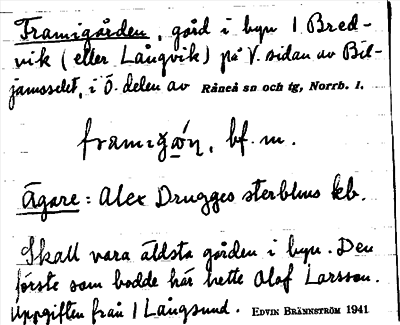 Framigården, gård i byn 1 Bred-
vik (eller Långvik) på V. sidan av Bil-
jamsselet, i Ö. delen av Råneå sn och tg, Norrb. l.
framɪgɷ́n, bf. m.
Ägare: Alex Drugges sterbhus kb.
Skall vara äldsta gården i byn. Den
förste som bodde här hette Olof Larsson.
Uppgiften från 1 Långsund. EDVIN BRÄNNSTRÖM 1941